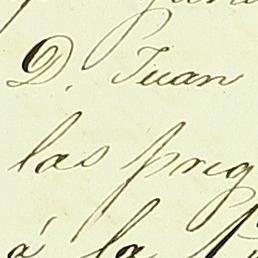 D. Juan
las preg
á la